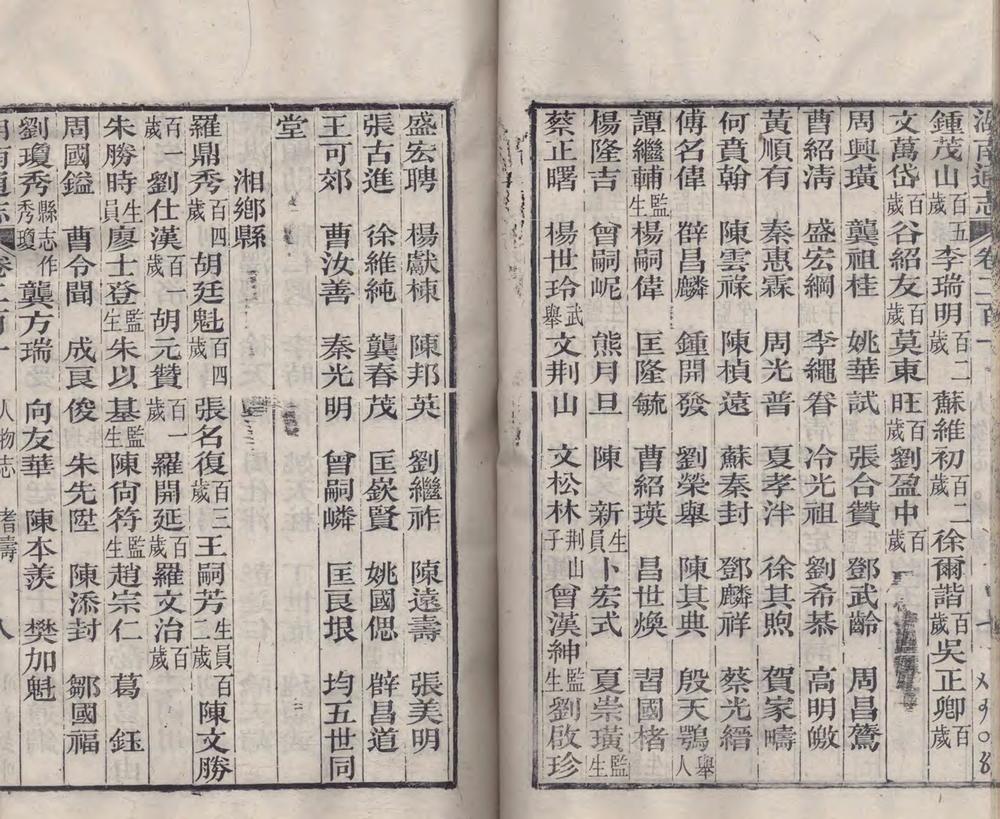 湖南通志 卷二百一
鍾茂山百五歲 李瑞明百二歲 蘇維初百二歲 徐爾諧百歲 吳正卿百歲
文萬岱百歲 谷紹友百歲 莫東旺百歲 劉盈中百歲
周興璜 龔祖桂 姚華試 張合贊 鄧武齡 周昌鶱
曹紹淸 盛宏綱 李繩眘 冷光祖 劉希綦 高明皦
黃順有 秦惠霖 周光普 夏孝泮 徐其煦 賀家疇
何賁翰 陳雲祿 陳楨遠 蘇秦封 鄧麟祥 蔡光縉
傅名偉 辥昌麟 鍾開發 劉榮舉 陳其典 殷天鶚舉人
譚繼輔監生 楊嗣偉 匡隆毓 曹紹瑛 昌世煥 習國楮
楊隆吉 曾嗣岷 熊月旦 陳新生員 卜宏式 夏崇璜監生
蔡正曙 楊世玲武舉 文荆山 文松林荆山子 曾漢紳監生 劉啟珍
盛宏聘 楊獻棟 陳邦英 劉繼祚 陳遠壽 張美明
張古進 徐維純 龔春茂 匡嶔賢 姚國偲 辥昌道
王可郊 曹汝善 秦光明 曾嗣嶙 匡艮垠 均五世同
堂
湘鄉縣
羅鼎秀百四歲 胡廷魁百四歲 張名復百三歲 王嗣芳生員百二歲 陳文勝
百一歲 劉仕漢百一歲 胡元贊百一歲 羅開延百歲 羅文治百歲
朱勝時生員 廖士登監生 朱以基監生 陳尙符監生 趙宗仁 葛鈺
周國鎰 曹令聞 成艮俊 朱先陞 陳添封 鄒國福
劉瓊秀縣志作秀瓊 龔方瑞 向友華 陳本羨 樊加魁
湖南通志 卷二百十 人物志 耆壽 八